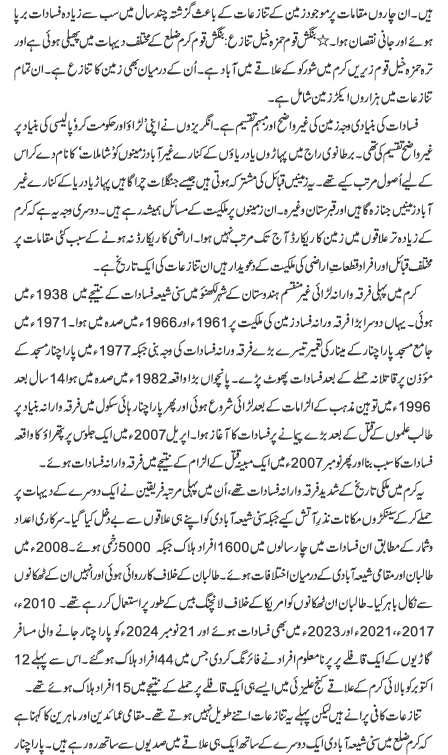 ہیں۔ ان چاروں مقامات پر موجود زمین کے تنازعات کے باعث گزشتہ چند سال میں سب سے زیادہ فسادات برپا
ہوئے اور جانی نقصان ہوا۔ ☆ بنگش قوم حمزہ خیل تنازع: بنگش قوم کرم ضلع کے مختلف دیہات میں پھیلی ہوئی ہے اور
ترہ حمزہ خیل قوم زیریں کرم میں شورکو کے علاقے میں آباد ہے۔ اُن کے درمیان بھی زمین کا تنازع ہے۔ ان تمام
تنازعات میں ہزاروں ایکڑ زمین شامل ہے۔
فسادات کی بنیادی وجہ زمین کی غیر واضح اور مبہم تقسیم ہے۔ انگریزوں نے اپنی 'لڑاؤ اور حکومت کرو' پالیسی کی بنیاد پر
غیر واضح تقسیم کی تھی۔ برطانوی راج میں پہاڑوں یا دریاؤں کے کنارے غیر آباد زمینوں کو 'شاملات' کا نام دے کر اس
کے لیے اُصول مرتب کیے تھے۔ یہ زمینیں قبائل کی مشترکہ ہوتی ہیں جیسے جنگلات چراگاہیں پہاڑ یا دریا کے کنارے غیر
آباد زمینیں جنازہ گاہیں اور قبرستان وغیرہ۔ ان زمینوں پر ملکیت کے مسائل ہمیشہ رہے ہیں۔ دوسری وجہ یہ ہے کہ کرم
کے زیادہ تر علاقوں میں زمین کا ریکارڈ آج تک مرتب نہیں ہوا۔ اراضی کا ریکارڈ نہ ہونے کے سبب کئی مقامات پر
مختلف قبائل اور افراد قطعاتِ اراضی کی ملکیت کے دعویدار ہیں ان تنازعات کی ایک تاریخ ہے۔
کرم میں پہلی فرقہ وارانہ لڑائی غیر منقسم ہندوستان کے شہر لکھنؤ میں سنی شیعہ فسادات کے نتیجے میں 1938ء میں
ہوئی۔ یہاں دوسرا بڑا فرقہ ورانہ فساد زمین کی ملکیت پر 1961ء اور 1966ء میں صدہ میں ہوا۔ 1971ء میں
جامع مسجد پاراچنار کے مینار کی تعمیر تیسرے بڑے فرقہ ورانہ فسادات کی وجہ بنی جبکہ 1977ء میں پاراچنار مسجد کے
مؤذن پر قاتلانہ حملے کے بعد فسادات پھوٹ پڑے۔ پانچواں بڑا واقعہ 1982ء میں صدہ میں ہوا 14 سال بعد
1996ء میں توہینِ مذہب کے الزامات کے بعد لڑائی شروع ہوئی اور پھر پاراچنار ہائی سکول میں فرقہ وارانہ بنیاد پر
طالب علموں کے قتل کے بعد بڑے پیمانے پر فسادات کا آغاز ہوا۔ اپریل 2007ء میں ایک جلوس پر پتھراؤ کا واقعہ
فسادات کا سبب بنا اور پھر نومبر 2007ء میں ایک مبینہ قتل کے الزام کے نتیجے میں فرقہ وارانہ فسادات ہوئے۔
یہ کرم میں ملکی تاریخ کے شدید فرقہ وارانہ فسادات تھے، اُن میں پہلی مرتبہ فریقین نے ایک دوسرے کے دیہات پر
حملے کر کے سینکڑوں مکانات نذرِ آتش کیے جبکہ سنی شیعہ آبادی کو اپنے ہی علاقوں سے بے دخل کیا گیا۔ سرکاری اعداد
وشمار کے مطابق ان فسادات میں چار سالوں میں 1600 افراد ہلاک جبکہ 5000 زخمی ہوئے۔ 2008ء میں
طالبان اور مقامی شیعہ آبادی کے درمیان اختلافات ہوئے۔ طالبان کے خلاف کارروائی ہوئی اور انہیں ان کے ٹھکانوں
سے نکال باہر کیا۔ طالبان ان ٹھکانوں کو امریکا کے خلاف لانچنگ بیس کے طور پر استعمال کر رہے تھے۔ 2010ء،
2017ء، 2021ء اور 2023ء میں بھی فسادات ہوئے اور 21 نومبر 2024ء کو پاراچنار جانے والی مسافر
گاڑیوں کے ایک قافلے پر پر نامعلوم افراد نے فائرنگ کر دی جس میں 44 افراد ہلاک ہو گئے۔ اس سے پہلے 12
اکتوبر کو بالائی کرم کے علاقے کنج علیزئی میں ایسے ہی ایک قافلے پر حملے کے نتیجے میں 15 افراد ہلاک ہوئے تھے۔
تنازعات کافی پرانے ہیں لیکن پہلے یہ تنازعات اتنے طویل نہیں ہوتے تھے۔ مقامی عمائدین اور ماہرین کا کہنا ہے
کہ کرم ضلع میں سنی شیعہ آبادی ایک دوسرے کے ساتھ ایک ہی علاقے میں صدیوں سے ساتھ رہ رہے ہیں۔ پاراچنار